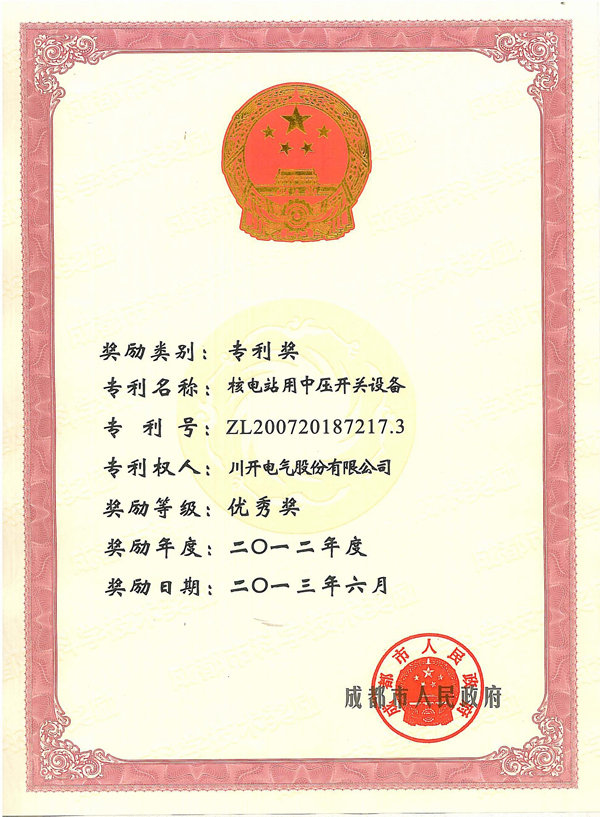 奖励类别：专利奖
专利名称：核电站用中压开关设备
专 利 号：ZL200720187217.3
专利权人：川开电气股份有限公司
奖励等级：优秀奖
奖励年度：二〇一二年度
奖励日期：二〇一三年六月
成都市人民政府
成都市人民政府